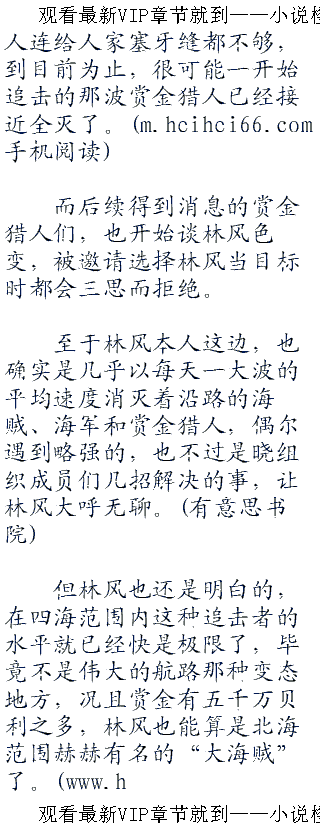 观看最新VIP章节就到——小说
人连给人家塞牙缝都不够，
到目前为止，很可能一开始
追击的那波赏金猎人已经接
近全灭了。(m.hcihci66.com
手机阅读)
而后续得到消息的赏金
猎人们，也开始谈林风色
变，被邀请选择林风当目标
时都会三思而拒绝。
至于林风本人这边，也
确实是几乎以每天一大波的
平均速度消灭着沿路的海
贼、海军和赏金猎人，偶尔
遇到略强的，也不过是晓组
织成员们几招解决的事，让
林风大呼无聊。(有意思书
院)
但林风也还是明白的，
在四海范围内这种追击者的
水平就已经快是极限了，毕
竟不是伟大的航路那种变态
地方，况且赏金有五千万贝
利之多，林风也能算是北海
范围赫赫有名的“大海贼”
了。(www.h
观看最新VIP章节就到——小说